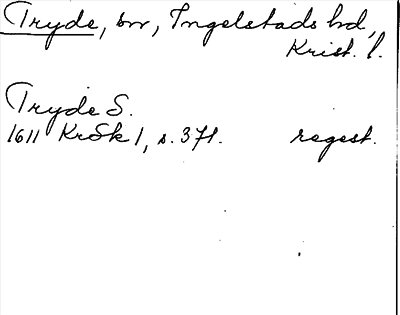 Tryde, sn, Ingelstads hd,
Krist. l.
Tryde S.
1611 KrSk 1, s. 371. regest.